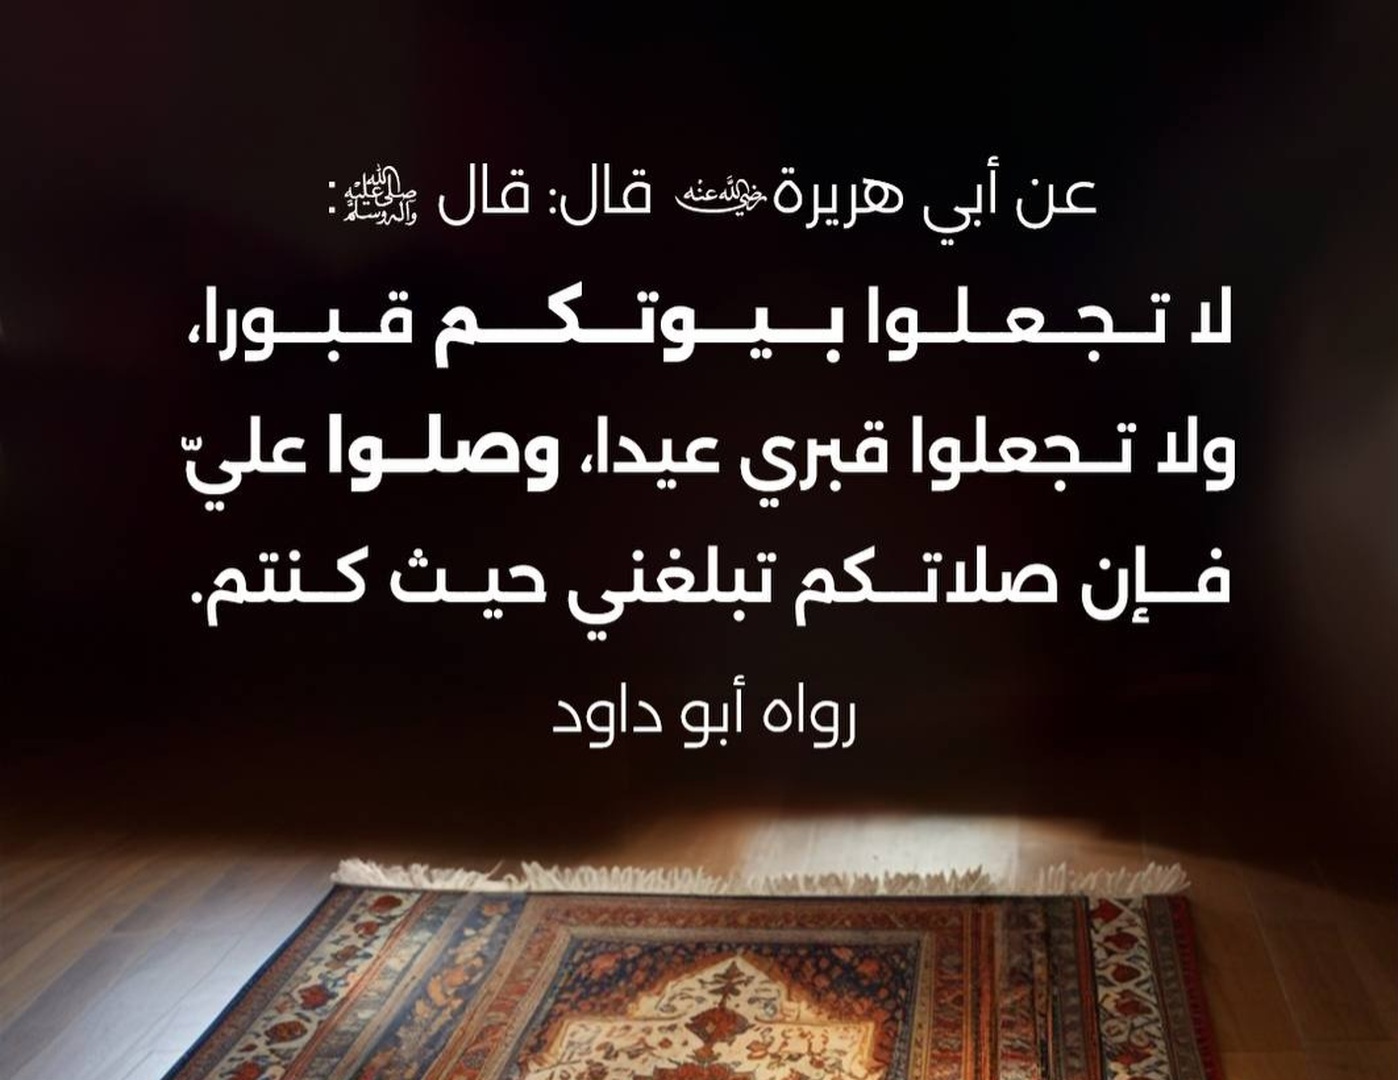 عن أبي هريرة رضي الله عنه قال: قال ﷺ:
لا تجعلوا بيوتكم قبورا،
ولا تجعلوا قبري عيدا، وصلوا عليّ
فإن صلاتكم تبلغني حيث كنتم.
رواه أبو داود